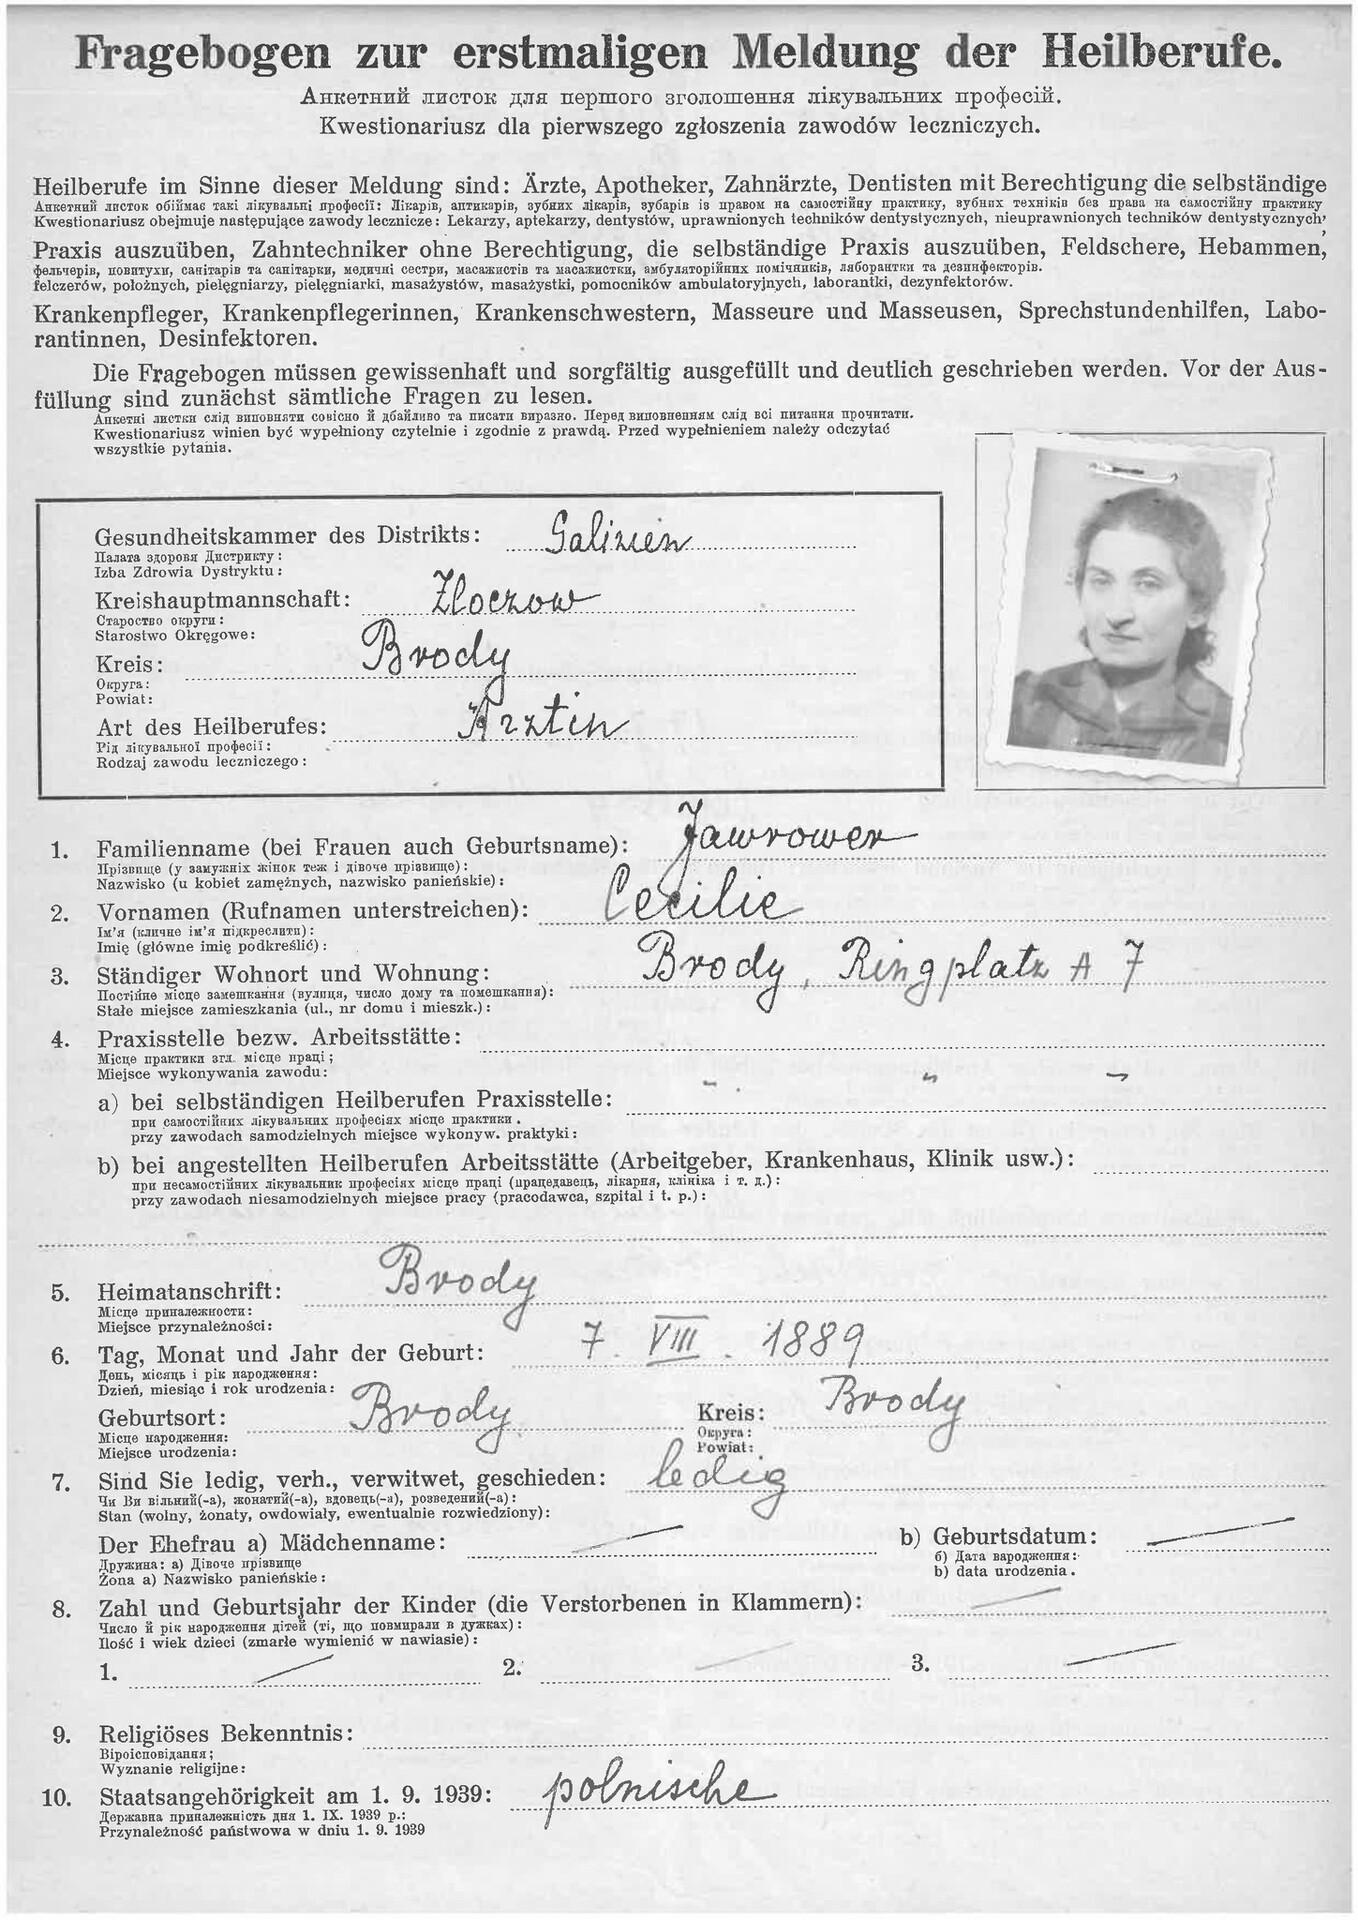 Fragebogen zur erstmaligen Meldung der Heilberufe.
Анкетний листок для першого зголошення лікувальних професій.
Kwestionariusz dla pierwszego zgłoszenia zawodów leczniczych.
Heilberufe im Sinne dieser Meldung sind: Ärzte, Apotheker, Zahnärzte, Dentisten mit Berechtigung die selbständige
Анкетний листок обіймає такі лікувальні професії: Лікарів, аптикарів, зубних лікарів, зубарів із правом на самостійну практику, зубних техніків без права на самостійну практику
Kwestionariusz obejmuje następujące zawody lecznicze: Lekarzy, aptekarzy, dentystów, uprawnionych techników dentystycznych, nieuprawnionych techników dentystycznych,
Praxis auszuüben, Zahntechniker ohne Berechtigung, die selbständige Praxis auszuüben, Feldschere, Hebammen,
фельчерів, повитухи, санітарів та санітарки, медичні сестри, масажистів та масажистки, амбуляторійних помічників, ляборантки та дезинфекторів.
felczerów, położnych, pielęgniarzy, pielęgniarki, masażystów, masażystki, pomocników ambulatoryjnych, laborantki, dezynfektorów.
Krankenpfleger, Krankenpflegerinnen, Krankenschwestern, Masseure und Masseusen, Sprechstundenhilfen, Labo-
rantinnen, Desinfektoren.
Die Fragebogen müssen gewissenhaft und sorgfältig ausgefüllt und deutlich geschrieben werden. Vor der Aus-
füllung sind zunächst sämtliche Fragen zu lesen.
Анкетні листки слід виповняти совісно й дбайливо та писати виразно. Перед виповненням слід всі питання прочитати.
Kwestionariusz winien być wypełniony czytelnie i zgodnie z prawdą. Przed wypełnieniem należy odczytać
wszystkie pytania.
Gesundheitskammer des Distrikts: Galizien
Палата здоровя Дистрикту:
Izba Zdrowia Dystryktu:
Kreishauptmannschaft: Złoczow
Староство округи:
Starostwo Okręgowe:
Kreis: Brody
Округа:
Powiat:
Art des Heilberufes: Ärztin
Рід лікувальної професії:
Rodzaj zawodu leczniczego:
1. Familienname (bei Frauen auch Geburtsname): Jawrower
Прізвище (у замужніх жінок теж і дівоче прізвище):
Nazwisko (u kobiet zamężnych, nazwisko panieńskie):
2. Vornamen (Rufnamen unterstreichen): Cecilie
Ім'я (кличне ім'я підкреслити):
Imię (główne imię podkreślić):
3. Ständiger Wohnort und Wohnung: Brody, Ringplatz A 7
Постійне місце замешкання (вулиця, число дому та помешкання):
Stałe miejsce zamieszkania (ul., nr domu i mieszk.):
4. Praxisstelle bezw. Arbeitsstätte:
Місце практики згл. місце праці;
Miejsce wykonywania zawodu:
a) bei selbständigen Heilberufen Praxisstelle: " " "
при самостійних лікувальних професіях місце практики.
przy zawodach samodzielnych miejsce wykonyw. praktyki:
b) bei angestellten Heilberufen Arbeitsstätte (Arbeitgeber, Krankenhaus, Klinik usw.):
при несамостійних лікувальник професіях місце праці (працедавець, лікарня, клініка і т. д.):
przy zawodach niesamodzielnych miejsce pracy (pracodawca, szpital i t. p.):
5. Heimatanschrift: Brody
Місце приналежности:
Miejsce przynależności:
6. Tag, Monat und Jahr der Geburt: 7. VIII. 1889
День, місяць і рік народження:
Dzień, miesiąc i rok urodzenia:
Geburtsort: Brody Kreis: Brody
Місце народження: Округа:
Miejsce urodzenia: Powiat:
7. Sind Sie ledig, verh., verwitwet, geschieden: ledig
Чи Ви вільний(-а), жонатий(-а), вдовець(-а), розведений(-а):
Stan (wolny, żonaty, owdowiały, ewentualnie rozwiedziony):
Der Ehefrau a) Mädchenname: b) Geburtsdatum:
Дружина: а) Дівоче прізвище б) Дата вародження:
Żona a) Nazwisko panieńskie: b) data urodzenia.
8. Zahl und Geburtsjahr der Kinder (die Verstorbenen in Klammern):
Число й рік народження дітей (ті, що повмирали в дужках):
Ilość i wiek dzieci (zmarłe wymienić w nawiasie):
1. 2. 3.
9. Religiöses Bekenntnis:
Віроісповідання;
Wyznanie religijne:
10. Staatsangehörigkeit am 1. 9. 1939: polnische
Державна приналежність дня 1. IX. 1939 р.:
Przynależność państwowa w dniu 1. 9. 1939